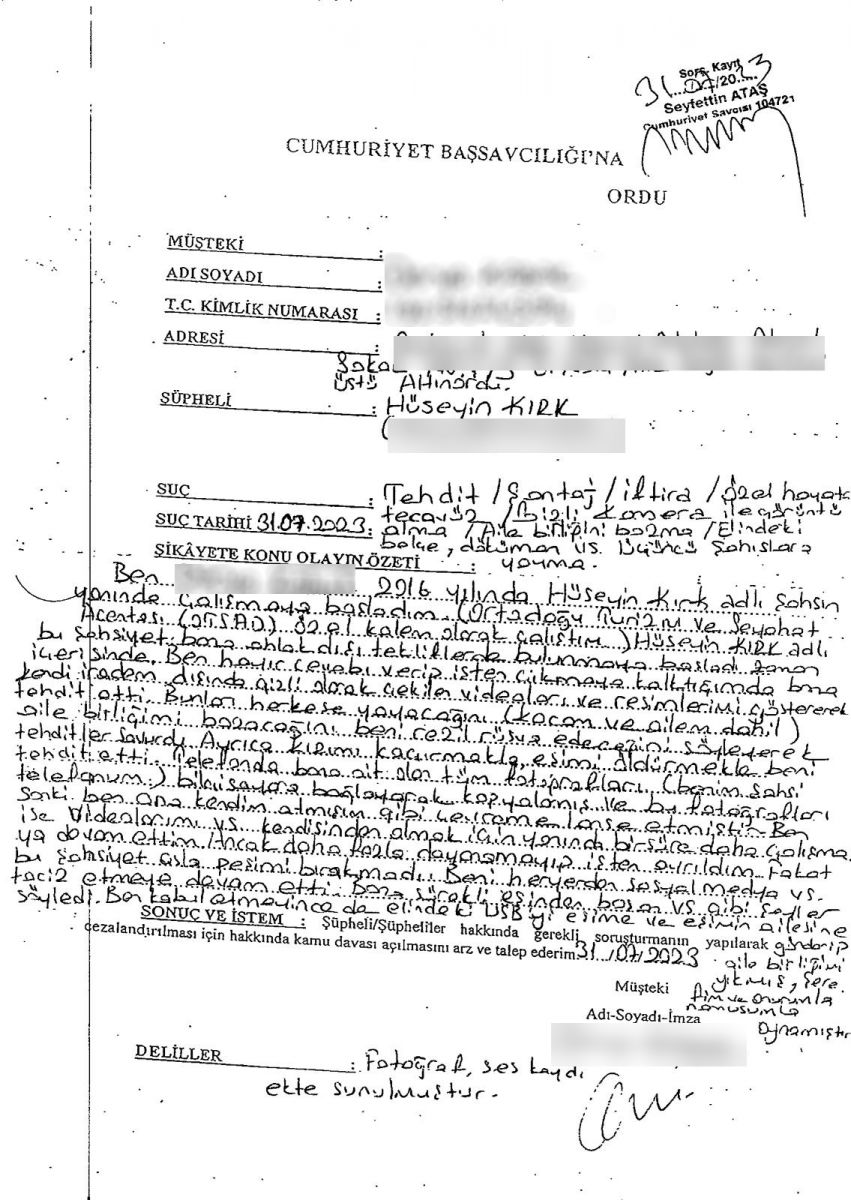 Sorş. Kayıt
31/07/2023
Seyfettin ATAŞ
Cumhuriyet Savcısı 104721
CUMHURİYET BAŞSAVCILIĞI'NA
ORDU
MÜŞTEKİ :
ADI SOYADI :
T.C. KİMLİK NUMARASI :
ADRESİ :
üstü Altınordu.
ŞÜPHELİ : Hüseyin KIRK
(
SUÇ : Tehdit / Şantaj / iftira / özel hayata
tecavüz / Gizli Kamera ile görüntü
SUÇ TARİHİ 31.07.2023: alma / Aile birliğini bozma / Elindeki
belge, döküman vs. üçüncü şahıslara
ŞİKÂYETE KONU OLAYIN ÖZETİ : yayma.
Ben 2016 yılında Hüseyin Kırk adlı şahsın
yanında çalışmaya başladım. (Ortadoğu Turizm ve Seyahat
Acentası (OTSAD) özel kalem olarak çalıştım) Hüseyin KIRK adlı
bu şahsiyet bana ahlak dışı tekliflerde bulunmaya başladı zaman
içerisinde. Ben hayır cevabı verip işten çıkmaya kalktığımda bana
kendi iradem dışında gizli olarak çekilen videoları ve resimlerimi göstererek
tehdit etti. Bunları herkese yayacağını (kocam ve ailem dahil)
aile birliğimi bozacağını beni rezil rüsva edeceğini söyleyerek
tehditler savurdu. Ayrıca kızımı kaçırmakla, eşimi öldürmekle beni
tehdit etti. Telefonda bana ait olan tüm fotoğrafları (benim şahsi
telefonum) bilgisayara bağlayarak kopyalamış ve bu fotoğrafları
sanki ben ona kendim atmışım gibi çevreme lanse etmiştir. Ben
ise videolarımı vs. kendisinden almak için yanında bir süre daha çalışma
ya devam ettim / Ancak daha fazla dayanamayıp işten ayrıldım. Fakat
bu şahsiyet asla peşimi bırakmadı. Beni heryerden sosyal medya vs.
taciz etmeye devam etti. Bana sürekli eşinden boşan vs gibi şeyler
söyledi. Ben kabul etmeyince de elindeki USB'yi eşime ve eşimin ailesine
SONUÇ VE İSTEM : Şüpheli/Şüpheliler hakkında gerekli soruşturmanın yapılarak gönderip
cezalandırılması için hakkında kamu davası açılmasını arz ve talep ederim 31/07/2023 aile birliğimi
yıkmış, şere
Müşteki fim ve onurumla
namusumla
Adı-Soyadı-İmza oynamıştır
DELİLLER : Fotoğraf, ses kaydı
ekte sunulmuştur.